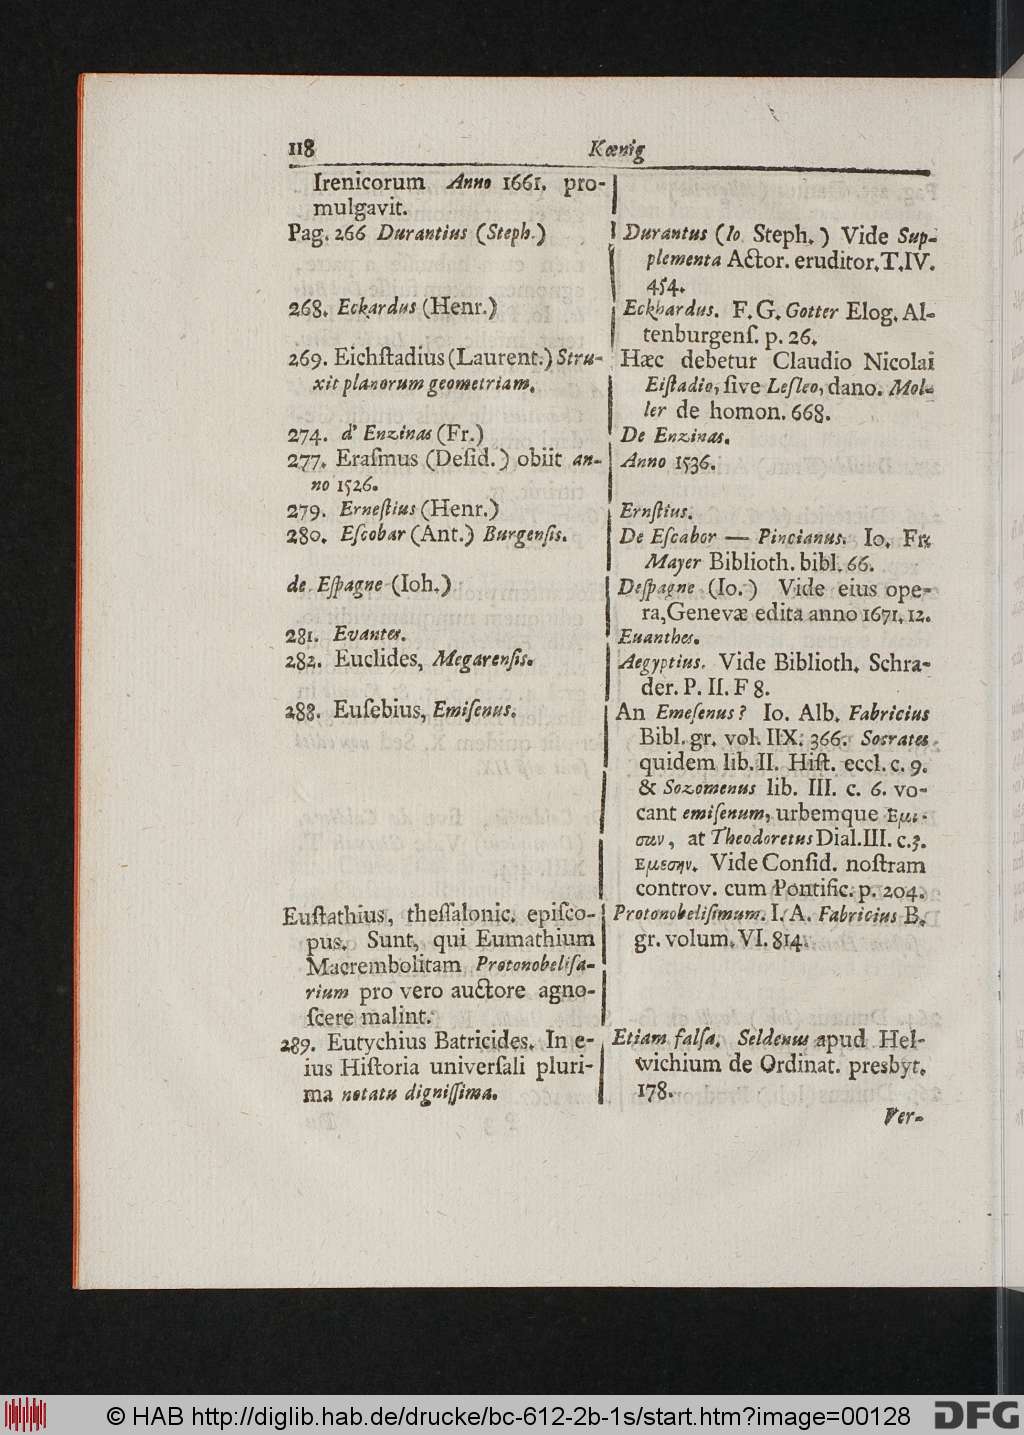 118 Kœnig
Irenicorum Anno 1661. pro-
mulgavit.
Pag. 266 Durantius (Steph.)
Durantus (Io. Steph.) Vide Sup-
plementa Actor. eruditor. T. IV.
454.
268. Eckardus (Henr.)
Eckhardus. F. G. Gotter Elog. Al-
tenburgenſ. p. 26.
269. Eichſtadius (Laurent.) Stru-
xit planorum geometriam.
Hæc debetur Claudio Nicolai
Eiſtadio, ſive Leſleo, dano. Mol-
ler de homon. 668.
274. d' Enzinas (Fr.)
De Enzinas.
277. Eraſmus (Deſid.) obiit an-
no 1526.
Anno 1536.
279. Erneſtius (Henr.)
Ernſtius.
280. Eſcobar (Ant.) Burgenſis.
De Eſcabor — Pincianus. Io. Fr.
Mayer Biblioth. bibl. 66.
de Eſpagne (Ioh.)
Deſpagne (Io.) Vide eius ope-
ra, Genevæ edita anno 1671. 12.
281. Evantes.
Euanthes.
282. Euclides, Megarenſis.
Aegyptius. Vide Biblioth. Schra-
der. P. II. F 8.
288. Euſebius, Emiſenus.
An Emeſenus? Io. Alb. Fabricius
Bibl. gr. vol. IIX. 366. Socrates
quidem lib. II. Hiſt. eccl. c. 9.
& Sozomenus lib. III. c. 6. vo-
cant emiſenum, urbemque Εμι-
σαν, at Theodoretus Dial. III. c. 3.
Εμεσην. Vide Conſid. noſtram
controv. cum Pontific. p. 204.
Euſtathius, theſſalonic. epiſco-
pus. Sunt, qui Eumathium
Macrembolitam Protonobeliſa-
rium pro vero auctore agno-
ſcere malint.
Protonobeliſimum. I. A. Fabricius B.
gr. volum. VI. 814.
289. Eutychius Batricides. In e-
ius Hiſtoria univerſali pluri-
ma notatu digniſſima.
Etiam falſa. Seldenus apud Hel-
wichium de Ordinat. presbyt.
178.
Ver-
© HAB http://diglib.hab.de/drucke/bc-612-2b-1s/start.htm?image=00128 DFG